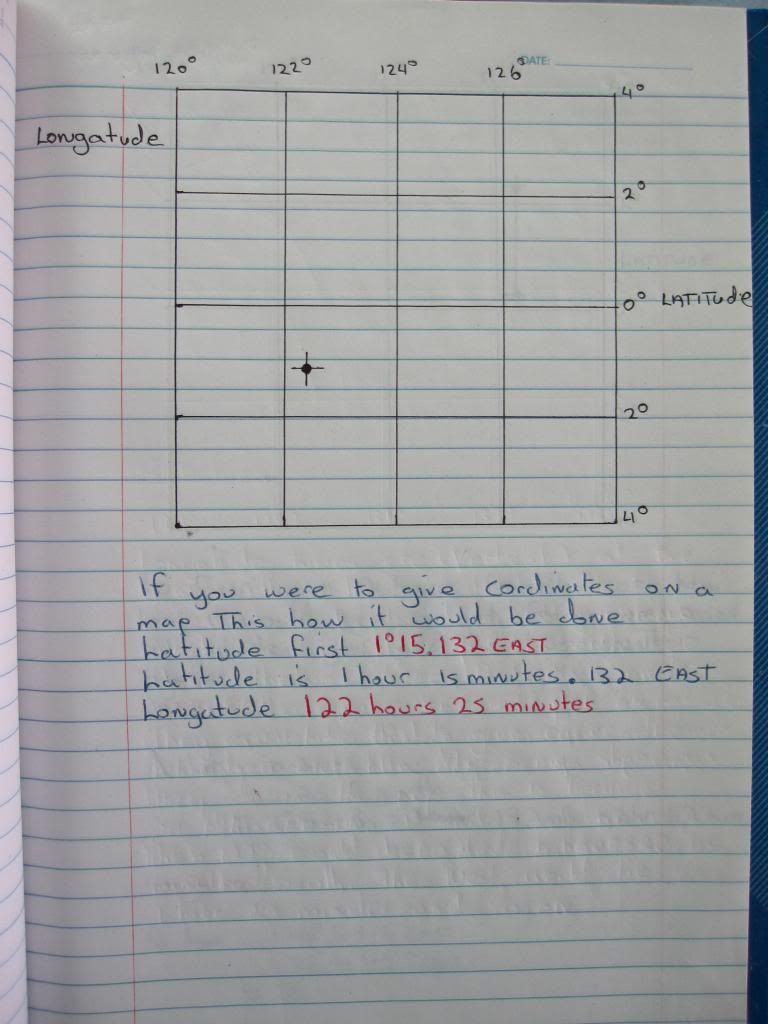 DATE:
120° 122° 124° 126°
4°
Longatude
2°
0° LATITUDE
2°
4°
If you were to give cordinates on a
map This how it would be done
Latitude first 1°15.132 EAST
Latitude is 1 hour 15 minutes. 132 EAST
Longatude 122 hours 25 minutes